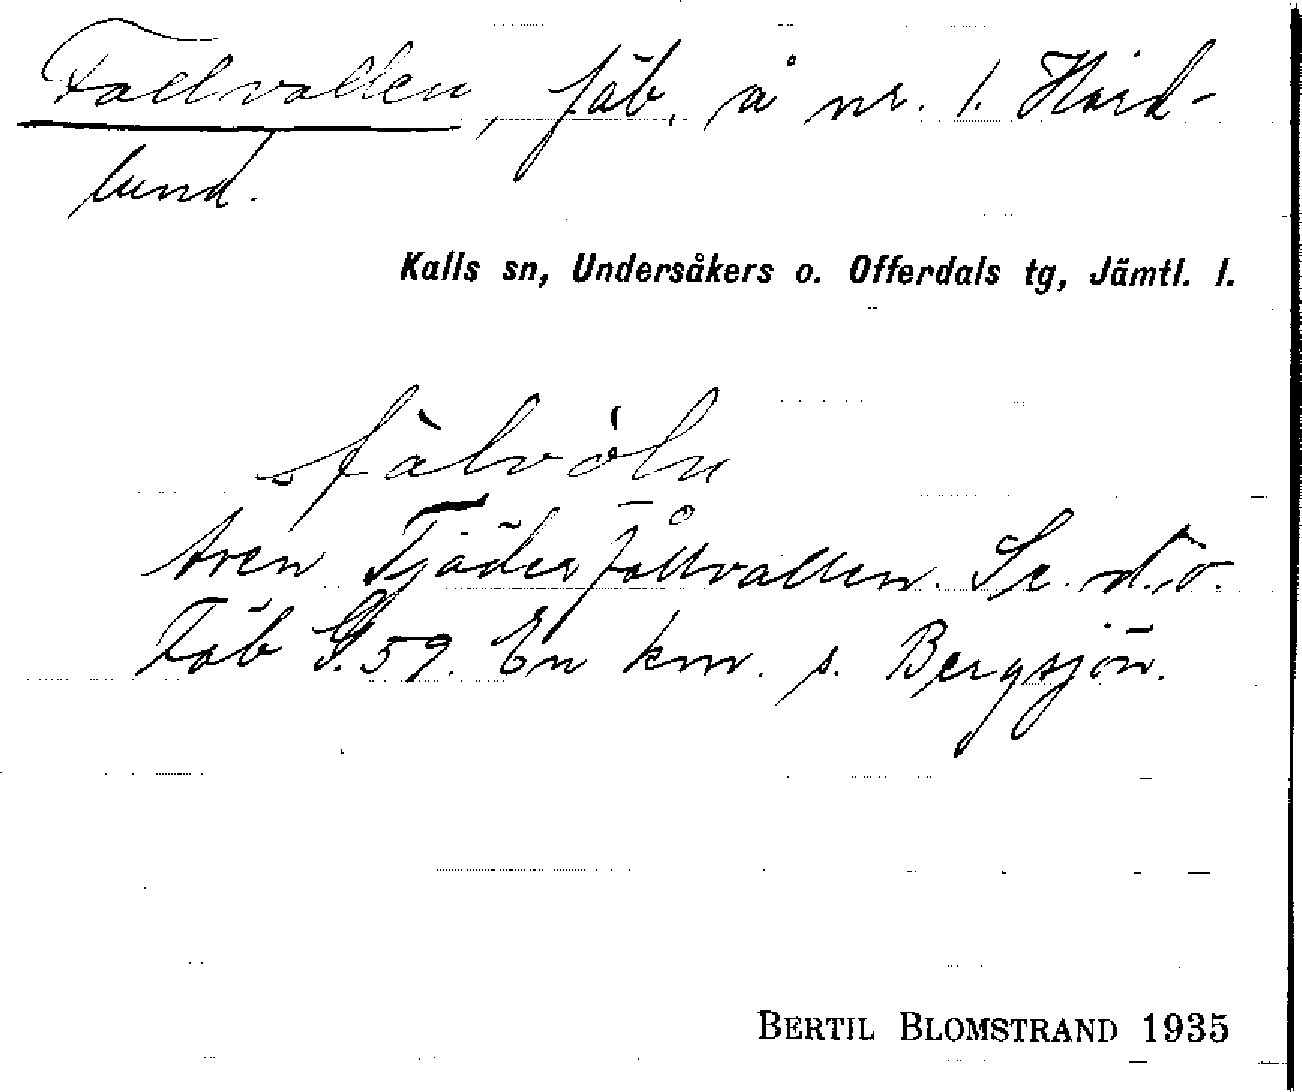 Fallvallen, fäb. å nr. 1. Hård-
lund.
Kalls sn, Undersåkers o. Offerdals tg, Jämtl. l.
fàlvòln
även Tjäderfållvallen. Se d.o.
Fäb G.59. En km. s. Bergsjön.
BERTIL BLOMSTRAND 1935